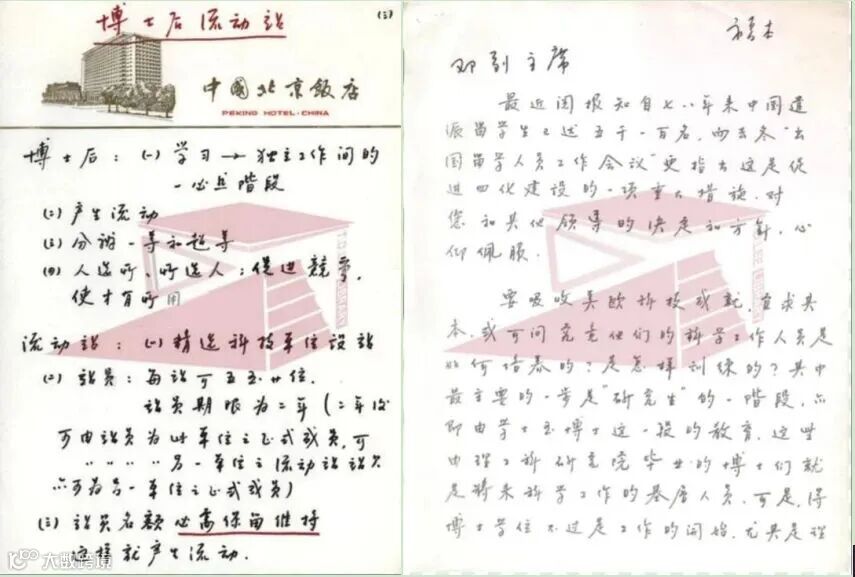 博士后流动站 (三)
中國北京飯店
PEKING HOTEL·CHINA
博士后：(一) 学习→独立工作间的
一必具階段
(二) 产生流动
(三) 一等和超等
(四) 人选所、所选人：促进競爭，
使才有所用
流动站：(一) 精选科技单位设站
(二) 站员：每站可五至廿位.
站员期限为二年 (二年后
可由站员为此单位之正式成员，可
〃 〃 〃 〃 另一单位之流动站站员
亦可为另一单位之正式成员)
(三) 站员名额必需保留维持
这样就产生流动.
大数跨境
邓副主席
最近阅报知自七八年来中国遣
派留学生已达五千一百名，而去冬"出
国留学人员工作会议"更指出这是促
进四化建设的一项重大措施. 对
您和其他领导的决定和方針，心
仰佩服.
要吸收美欧科技成就，宜求其
本，或可问究竟他们的科学工作人员是
如何培养的？是怎样训练的？其中
最主要的一步是"研究生"的一階段，亦
即由学士至博士这一段的教育. 这些
由理工科研究院毕业的博士们就
是将来科学工作的基层人员. 可是，得
博士学位不过是工作的開始，尤其是理